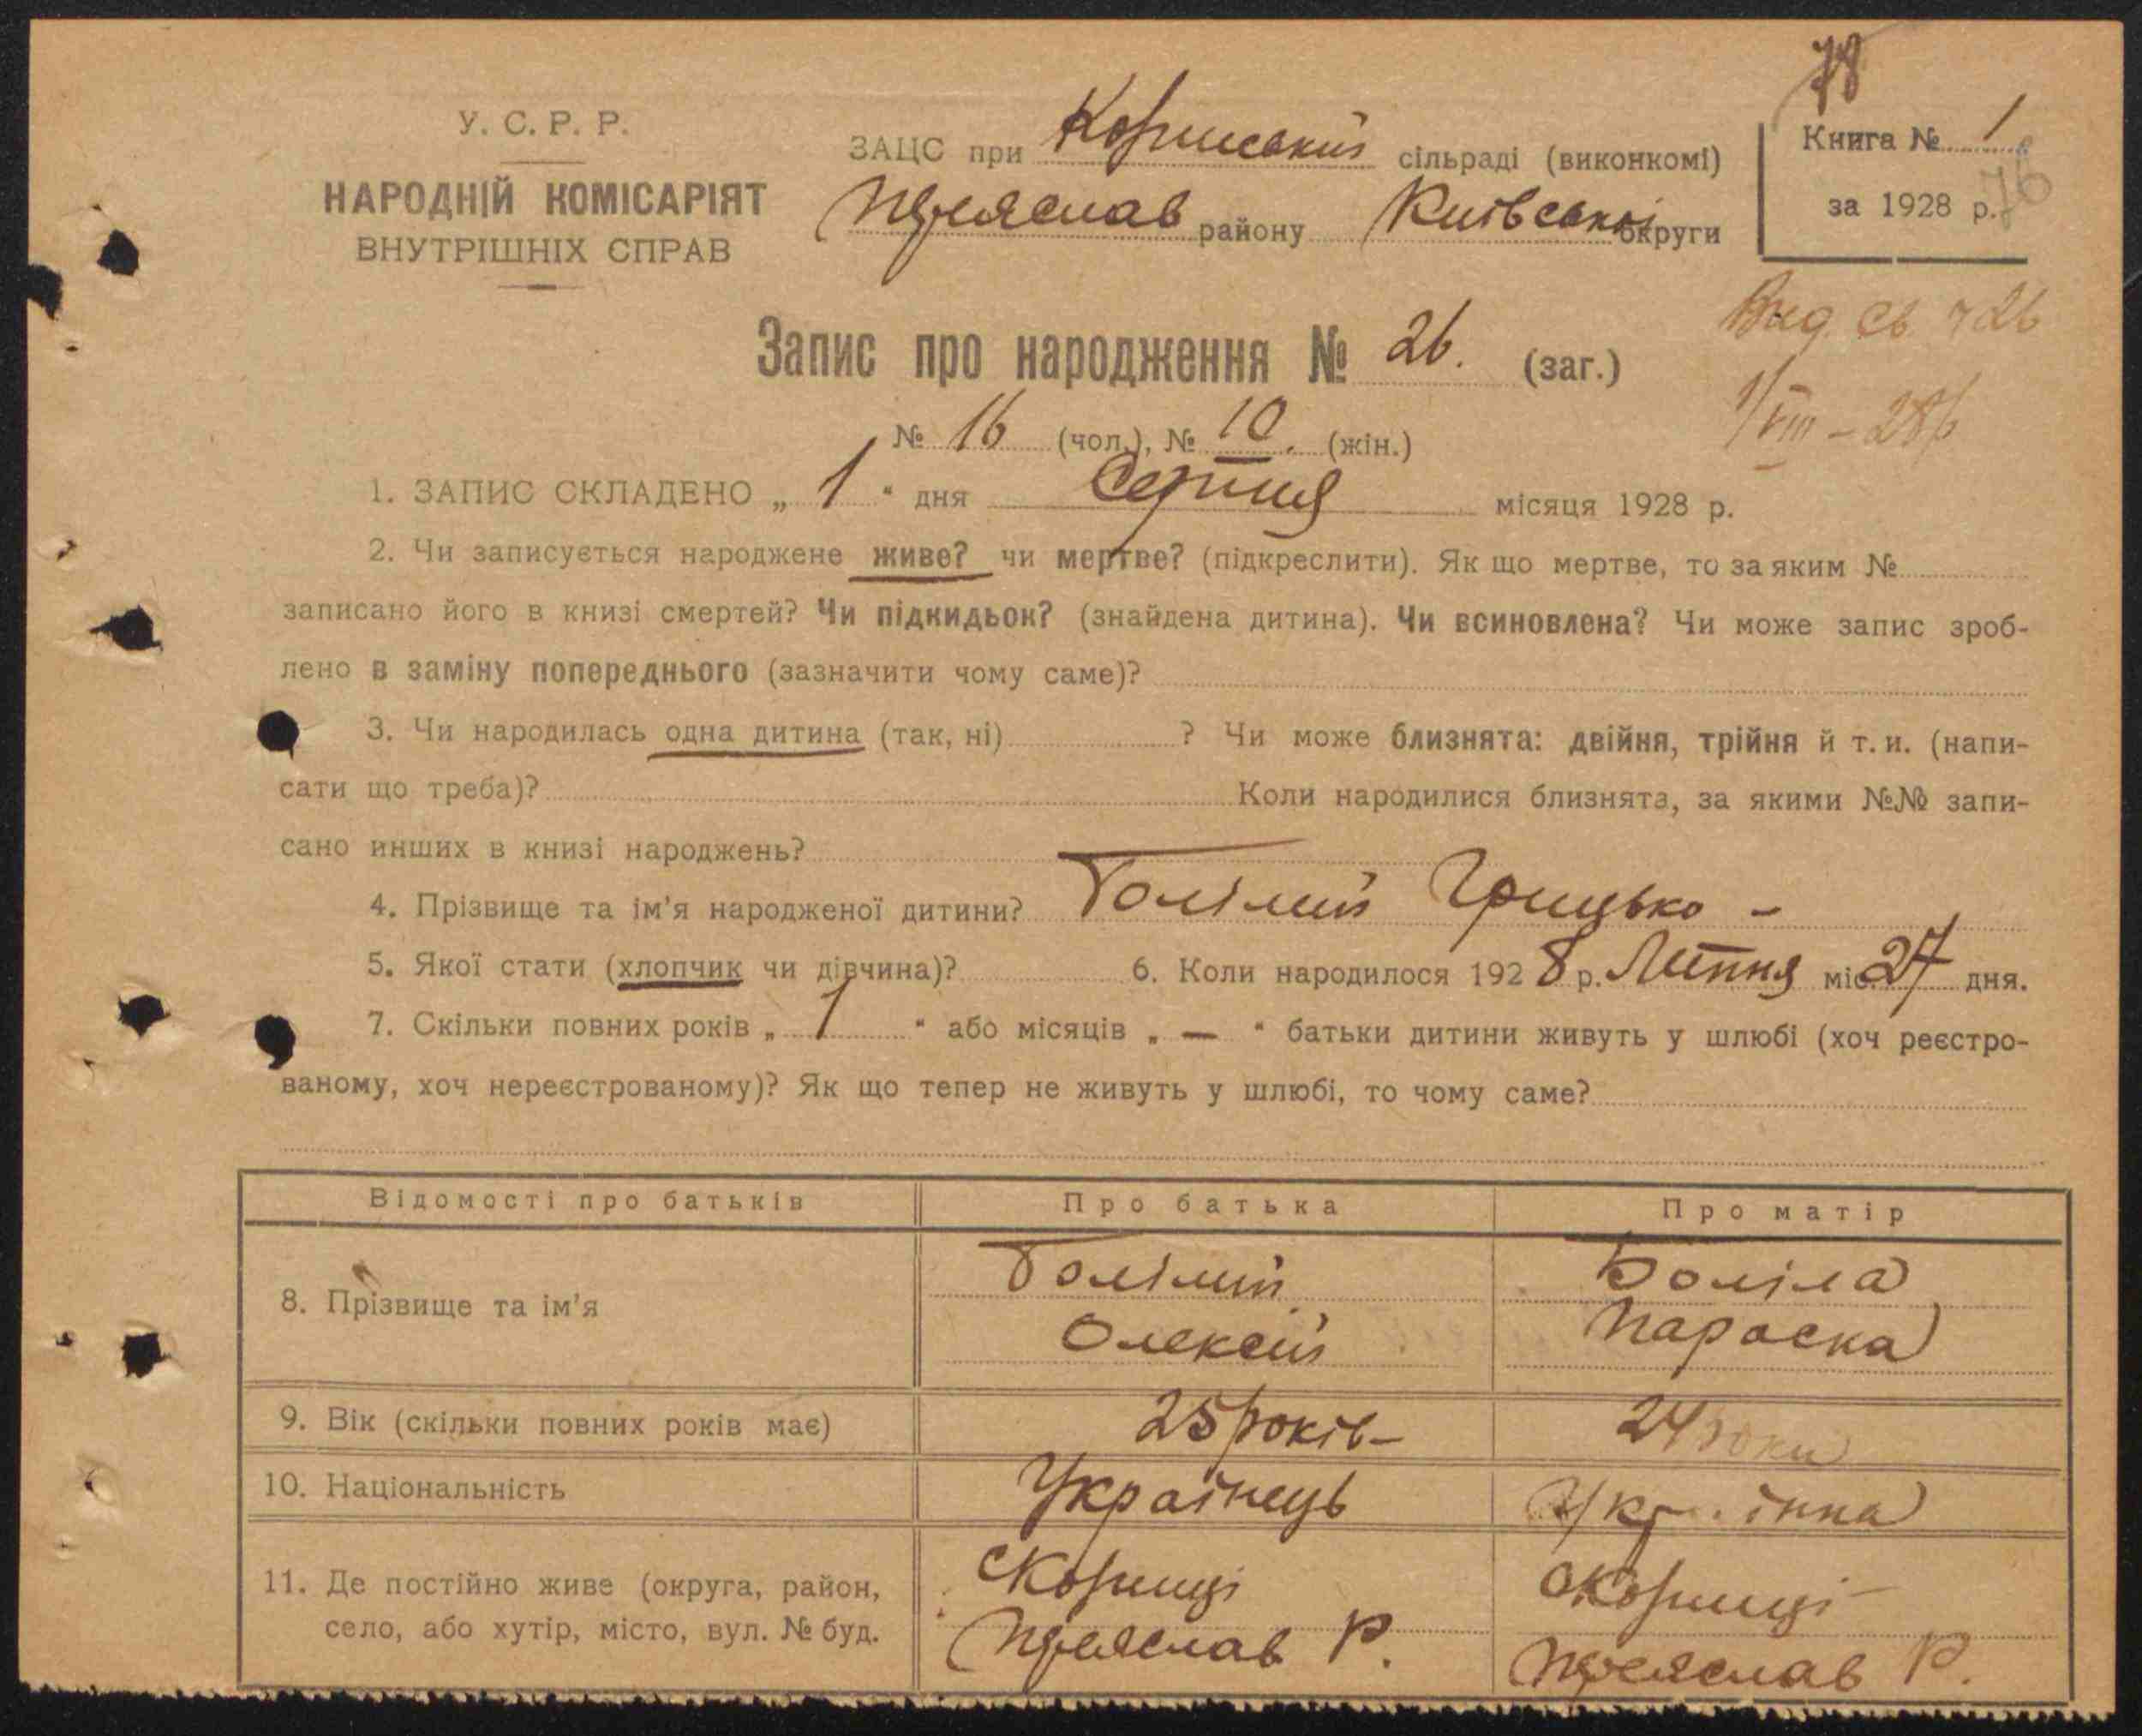 78
У. С. Р. Р.
НАРОДНІЙ КОМІСАРІЯТ
ВНУТРІШНІХ СПРАВ
ЗАЦС при сільраді (виконкомі)
Переяслав району Київської округи
Книга № 1
за 1928 р.
76
Запис про народження № 26. (заг.)
Вид. св. ч 26
1/VIII – 28 р
№ 16 (чол.), № 10. (жін.)
1. ЗАПИС СКЛАДЕНО „ 1 " дня Серпня місяця 1928 р.
2. Чи записується народжене живе? чи мертве? (підкреслити). Як що мертве, то за яким №
записано його в книзі смертей? Чи підкидьок? (знайдена дитина). Чи всиновлена? Чи може запис зроб-
лено в заміну попереднього (зазначити чому саме)?
3. Чи народилась одна дитина (так, ні) ? Чи може близнята: двійня, трійня й т. и. (напи-
сати що треба)? Коли народилися близнята, за якими №№ запи-
сано инших в книзі народжень?
4. Прізвище та ім'я народженої дитини? Болілий Грицько –
5. Якої стати (хлопчик чи дівчина)? 6. Коли народилося 1928 р. Липня міс. 27 дня.
7. Скільки повних років „ 1 " або місяців „ — " батьки дитини живуть у шлюбі (хоч реєстро-
ваному, хоч нереєстрованому)? Як що тепер не живуть у шлюбі, то чому саме?
Відомості про батьків Про батька Про матір
8. Прізвище та ім'я Болілий Боліла
Олексій Параска
9. Вік (скільки повних років має) 25 років – 24 роки
10. Національність Українець Укр. інка
11. Де постійно живе (округа, район, с Корищі с Корищі
село, або хутір, місто, вул. № буд. Переяслав Р. Переяслав Р.